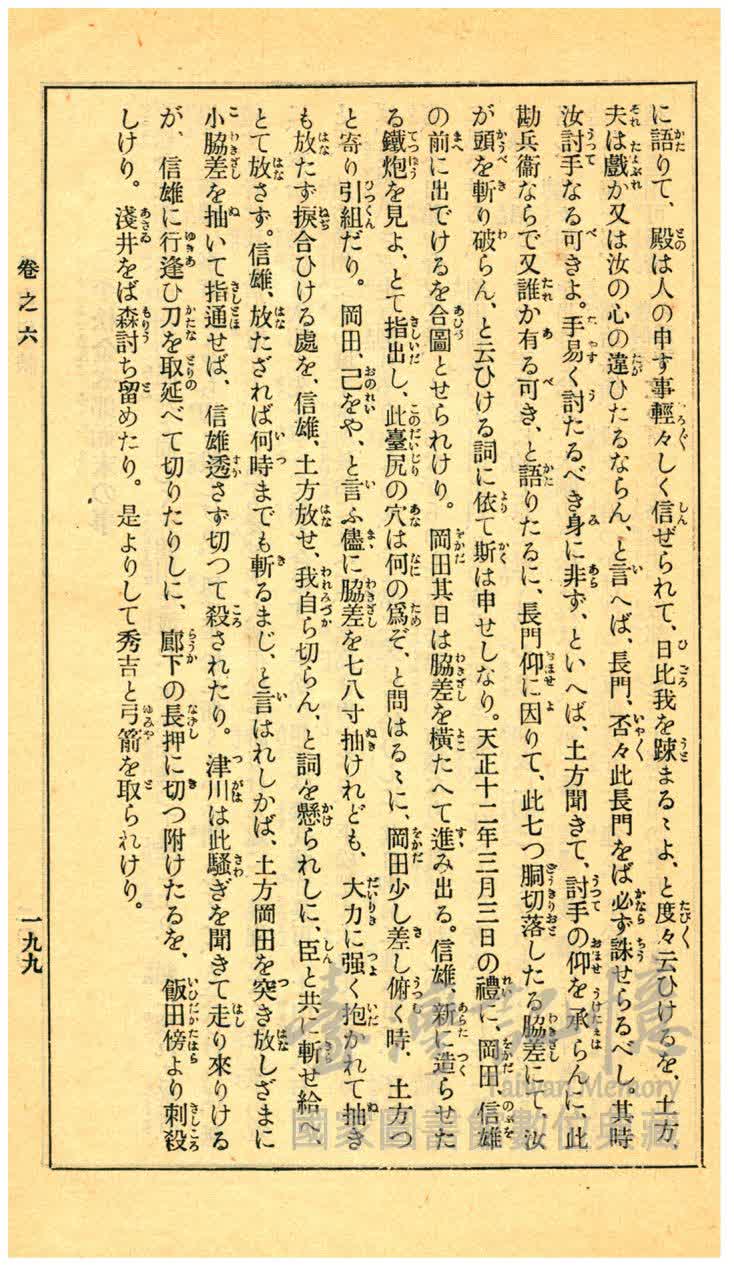 に語りて、殿は人の申す事輕々しく信ぜられて、日比我を踈まるゝよ、と度々云ひけるを、土方、
夫は戲か又は汝の心の違ひたるならん、と言へば、長門、否々此長門をば必ず誅せらるべし。其時
汝討手なる可きよ。手易く討たるべき身に非ず、といへば、土方聞きて、討手の仰を承らんに、此
勘兵衞ならで又誰か有る可き、と語りたるに、長門仰に因りて、此七つ胴切落したる脇差にて、汝
が頭を斬り破らん、と云ひける詞に依て斯は申せしなり。天正十二年三月三日の禮に、岡田、信雄
の前に出でけるを合圖とせられけり。岡田其日は脇差を橫たへて進み出る。信雄、新に造らせた
る鐵炮を見よ、とて指出し、此臺尻の穴は何の爲ぞ、と問はるゝに、岡田少し差し俯く時、土方つ
と寄り引組だり。岡田、己をや、と言ふ儘に脇差を七八寸抽けれども、大力に强く抱かれて抽き
も放たず捩合ひける處を、信雄、土方放せ、我自ら切らん、と詞を懸られしに、臣と共に斬せ給へ、
とて放さず。信雄、放たざれば何時までも斬るまじ、と言はれしかば、土方岡田を突き放しざまに
小脇差を抽いて指通せば、信雄透さず切つて殺されたり。津川は此騷ぎを聞きて走り來りける
が、信雄に行逢ひ刀を取延べて切りたりしに、廊下の長押に切つ附けたるを、飯田傍より刺殺
しけり。淺井をば森討ち留めたり。是よりして秀吉と弓箭を取られけり。
卷之六
一九九
臺灣記憶
Taiwan Memory
國家圖書館數位典藏